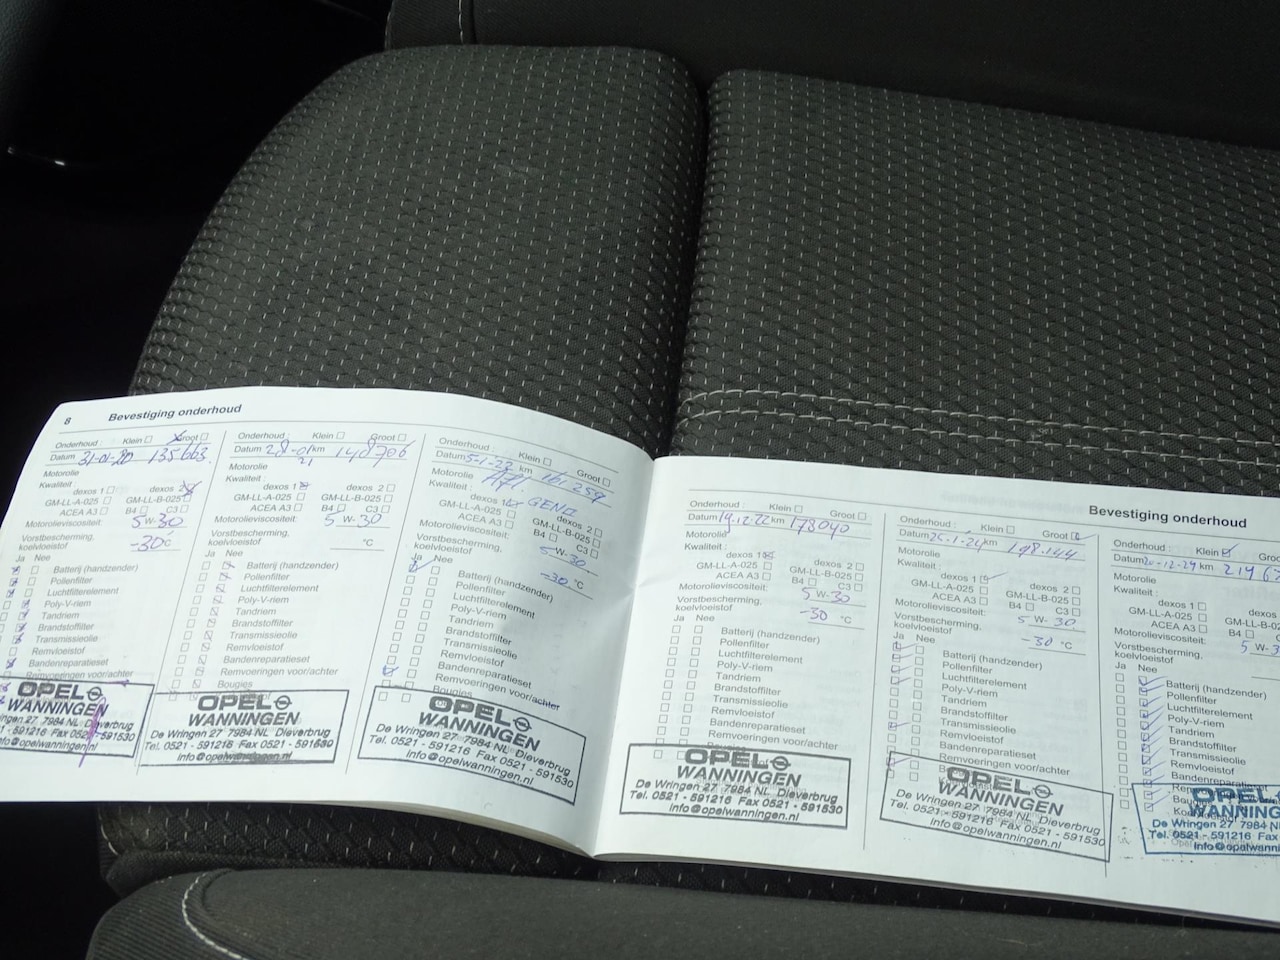 8 Bevestiging onderhoud
Onderhoud : Klein Groot
Datum 31-01-20 135663
Motorolie
Kwaliteit :
dexos 1 dexos 2
GM-LL-A-025 GM-LL-B-025
ACEA A3 B4 C3
Motorolieviscositeit: 5 W- 30
Vorstbescherming,
koelvloeistof -30°C
Ja Nee
Batterij (handzender)
Pollenfilter
Luchtfilterelement
Poly-V-riem
Tandriem
Brandstoffilter
Transmissieolie
Remvloeistof
Bandenreparatieset
Remvoeringen voor/achter
OPEL
WANNINGEN
Wringen 27 7984 NL Dieverbrug
591216 Fax 0521 - 591530
info@opelwanningen.nl
Onderhoud : Klein Groot
Datum 28-01 km 140706
21
Motorolie
Kwaliteit :
dexos 1 dexos 2
GM-LL-A-025 GM-LL-B-025
ACEA A3 B4 C3
Motorolieviscositeit: 5 W- 30
Vorstbescherming,
koelvloeistof °C
Ja Nee
Batterij (handzender)
Pollenfilter
Luchtfilterelement
Poly-V-riem
Tandriem
Brandstoffilter
Transmissieolie
Remvloeistof
Bandenreparatieset
Remvoeringen voor/achter
Bougies
OPEL
WANNINGEN
De Wringen 27 7984 NL Dieverbrug
Tel. 0521 - 591216 Fax 0521 - 591530
info@opelwanningen.nl
Onderhoud : Klein Groot
Datum 5-1-22 km 161.259
Motorolie
Kwaliteit :
dexos 2
GM-LL-A-025 GM-LL-B-025
ACEA A3 B4 C3
Motorolieviscositeit: 5 W- 30
Vorstbescherming,
koelvloeistof -30 °C
Ja Nee
Batterij (handzender)
Pollenfilter
Luchtfilterelement
Poly-V-riem
Tandriem
Brandstoffilter
Transmissieolie
Remvloeistof
Bandenreparatieset
Remvoeringen voor/achter
Bougies
OPEL
WANNINGEN
De Wringen 27 7984 NL Dieverbrug
Tel. 0521 - 591216 Fax 0521 - 591530
info@opelwanningen.nl
Bevestiging onderhoud
Onderhoud : Klein Groot
Datum 19.12.22 km 178040
Motorolie
Kwaliteit :
dexos 1 dexos 2
GM-LL-A-025 GM-LL-B-025
ACEA A3 B4 C3
Motorolieviscositeit: 5 W- 30
Vorstbescherming,
koelvloeistof -30 °C
Ja Nee
Batterij (handzender)
Pollenfilter
Luchtfilterelement
Poly-V-riem
Tandriem
Brandstoffilter
Transmissieolie
Remvloeistof
Bandenreparatieset
Remvoeringen voor/achter
Bougies
OPEL
WANNINGEN
De Wringen 27 7984 NL Dieverbrug
Tel. 0521 - 591216 Fax 0521 - 591530
info@opelwanningen.nl
Onderhoud : Klein Groot
Datum 25-1-24 km 198.144
Motorolie
Kwaliteit :
dexos 1 dexos 2
GM-LL-A-025 GM-LL-B-025
ACEA A3 B4 C3
Motorolieviscositeit: 5 W- 30
Vorstbescherming,
koelvloeistof -30 °C
Ja Nee
Batterij (handzender)
Pollenfilter
Luchtfilterelement
Poly-V-riem
Tandriem
Brandstoffilter
Transmissieolie
Remvloeistof
Bandenreparatieset
Remvoeringen voor/achter
OPEL
WANNINGEN
De Wringen 27 7984 NL Dieverbrug
Tel. 0521 - 591216 Fax 0521 - 591530
info@opelwanningen.nl
Onderhoud : Klein Groot
Datum 20-12-24 km
Motorolie
Kwaliteit :
dexos 1
GM-LL-A-025 GM-LL-B-02
ACEA A3 B4
Motorolieviscositeit: 5 W-3
Vorstbescherming,
koelvloeistof
Ja Nee
Batterij (handzender)
Pollenfilter
Luchtfilterelement
Poly-V-riem
Tandriem
Brandstoffilter
Transmissieolie
Remvloeistof
Bandenreparatieset
OPEL
WANNINGEN
De Wringen 27 7984 NL Dieve
Tel. 0521 - 591216 Fax
info@opelwannin